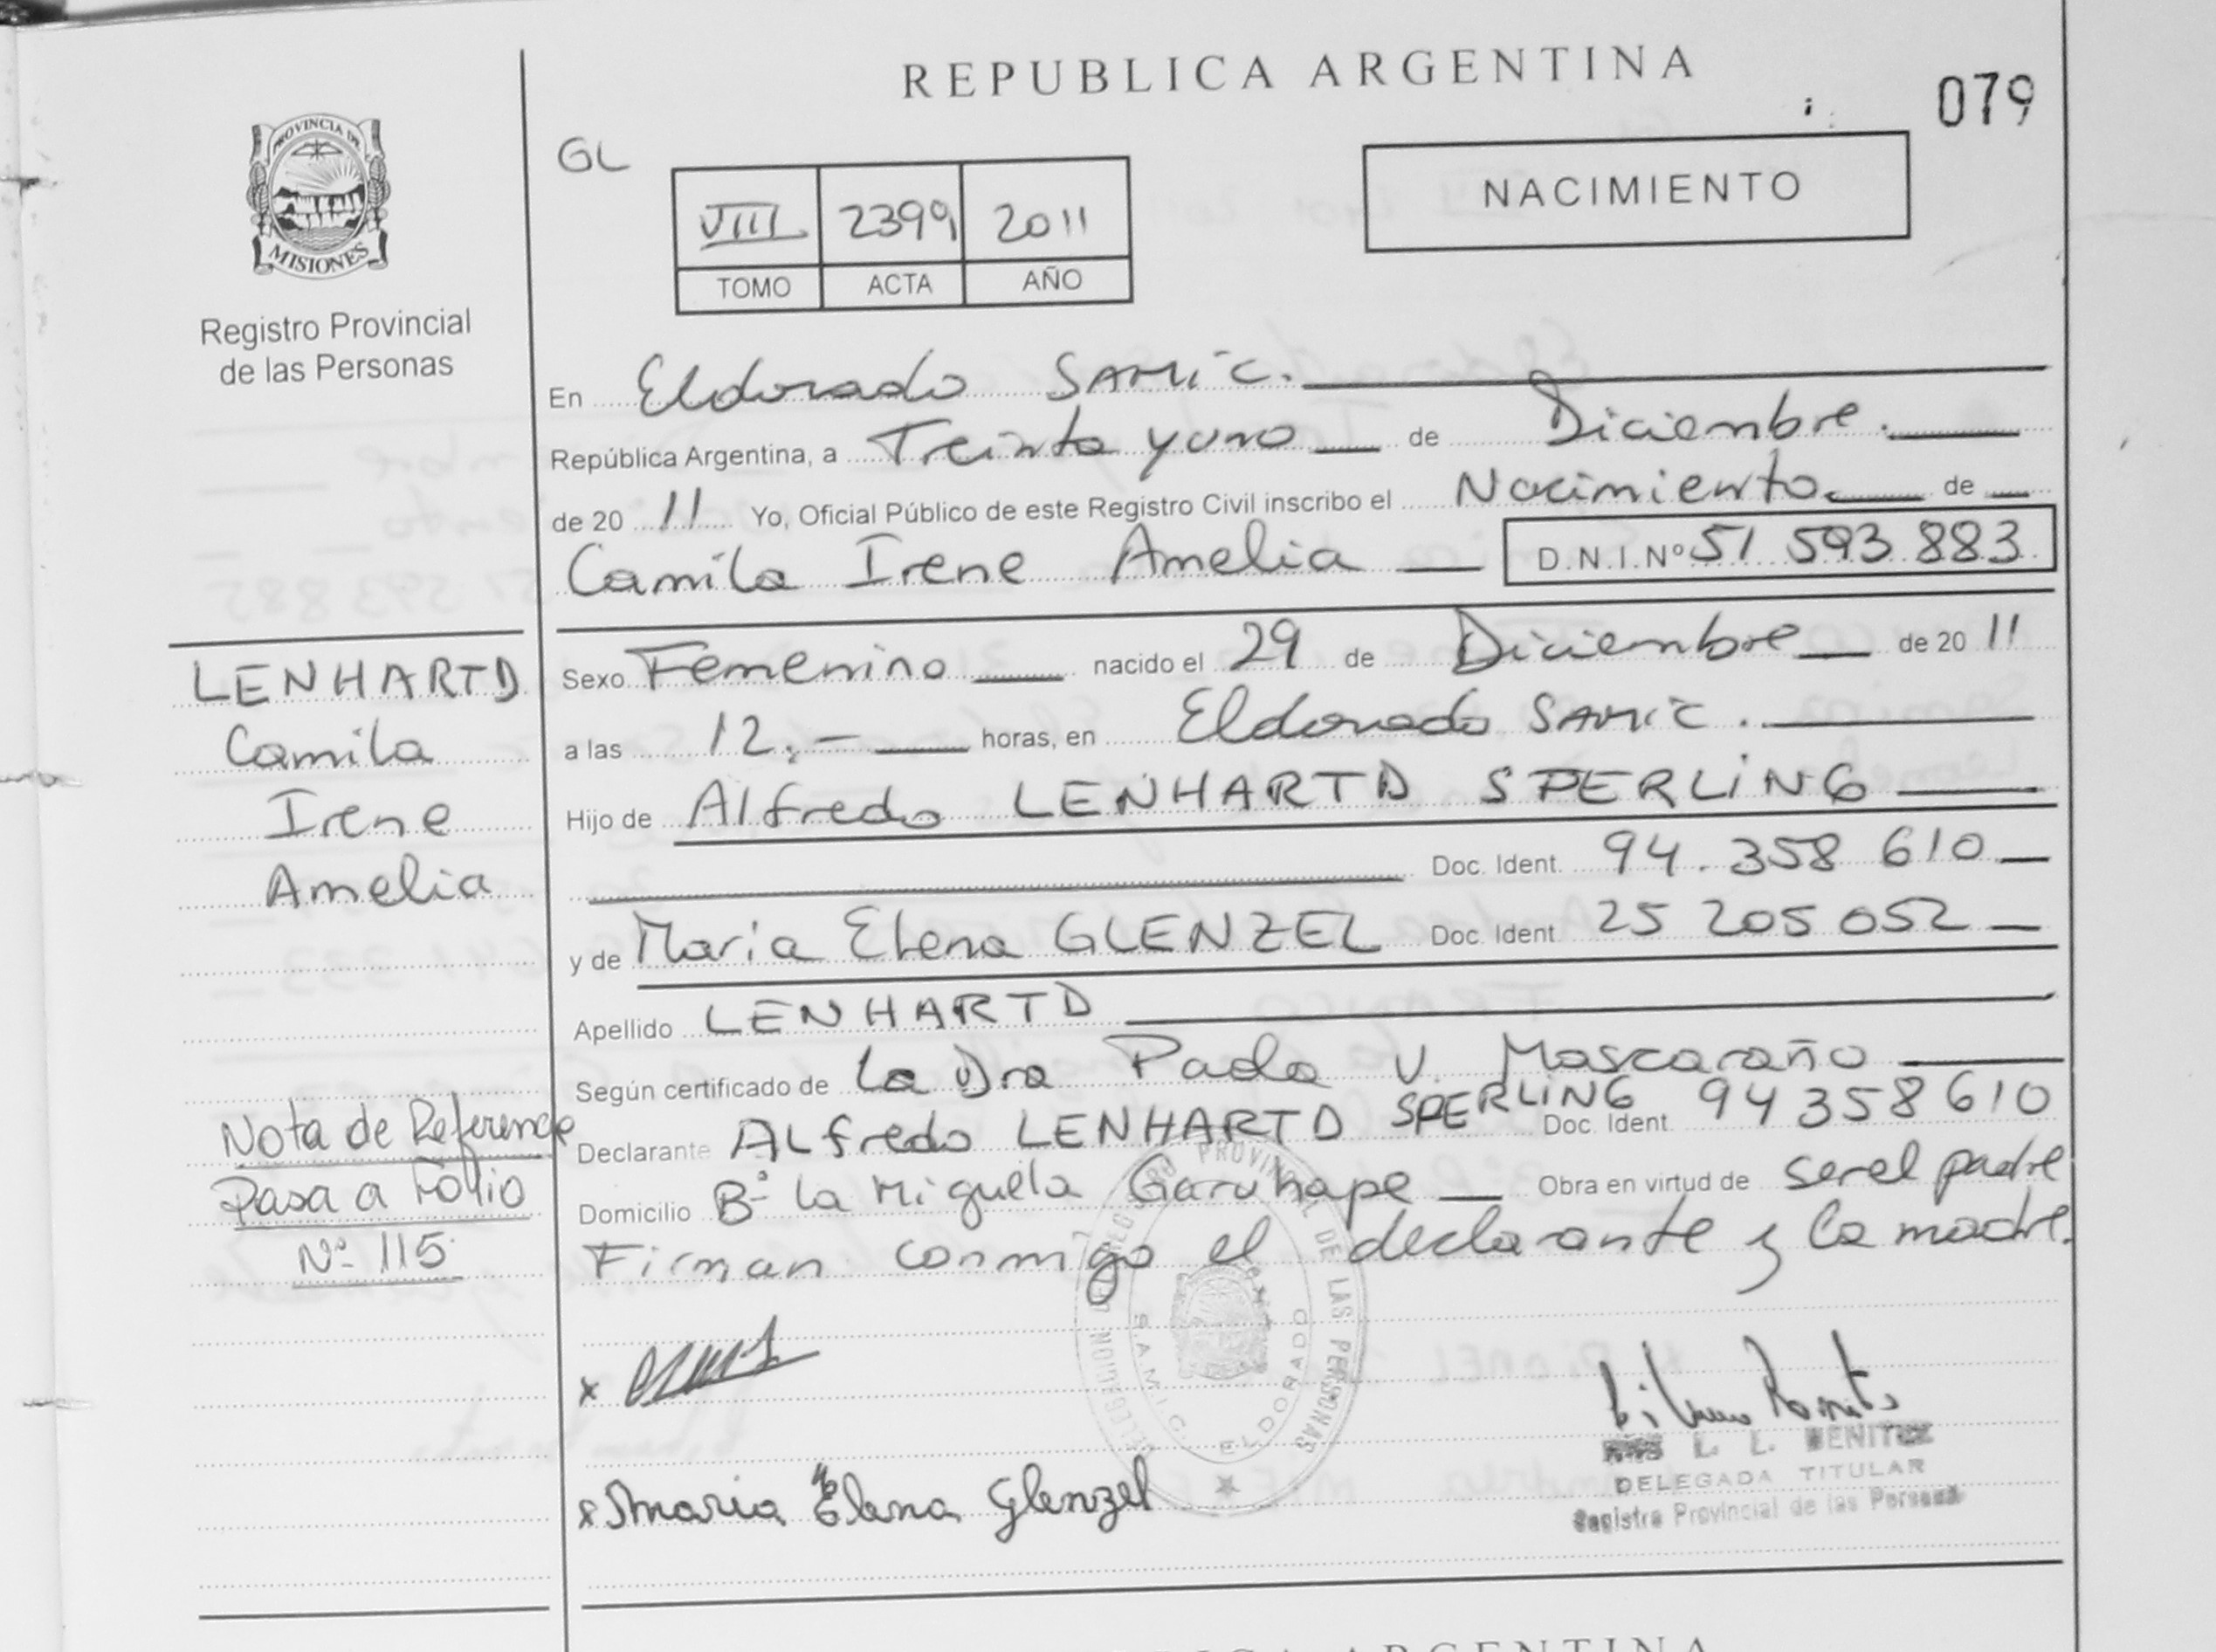 REPUBLICA ARGENTINA
079
PROVINCIA DE
MISIONES
Registro Provincial
de las Personas
GL
VIII 2399 2011
TOMO ACTA AÑO
NACIMIENTO
En Eldorado SAMIC.
República Argentina, a Treinta y uno de Diciembre.
de 20 11 Yo, Oficial Público de este Registro Civil inscribo el Nacimiento. de
Camila Irene Amelia D.N.I.Nº 51 593 883
LENHARTD
Camila
Irene
Amelia
Sexo Femenino nacido el 29 de Diciembre de 20 11
a las 12.- horas, en Eldorado SAMIC.
Hijo de Alfredo LENHARTD SPERLING
Doc. Ident. 94.358 610
y de Maria Elena GLENZEL Doc. Ident. 25 205 052
Apellido LENHARTD
Según certificado de La Dra Paola V. Mascaraño
Declarante ALfredo LENHARTD SPERLING Doc. Ident. 94 358 610
Domicilio Bº La Miguela Garuhape Obra en virtud de ser el padre
Firman conmigo el declarante y la madre.
Nota de Referencia
Pasa a Folio
Nº 115
x
x Maria Elena Glenzel
PROVINCIAL DE LAS PERSONAS
S.A.M.I.C. ELDORADO
L. L. BENITEZ
DELEGADA TITULAR
Registro Provincial de las Personas